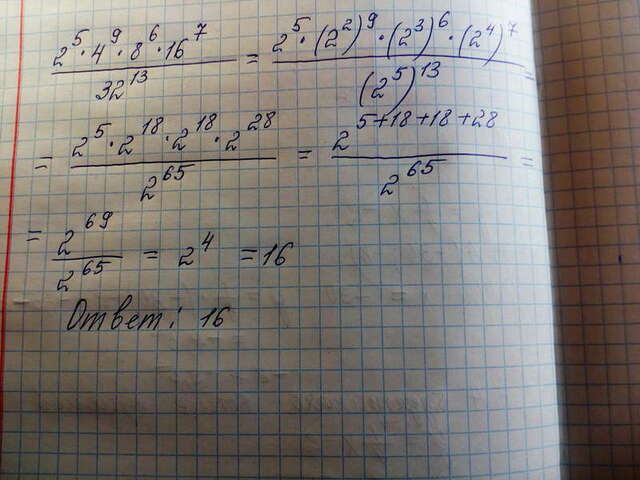 2^5 · 4^9 · 8^6 · 16^7 / 32^13 = 2^5 · (2^2)^9 · (2^3)^6 · (2^4)^7 / (2^5)^13 =
= 2^5 · 2^18 · 2^18 · 2^28 / 2^65 = 2^5+18+18+28 / 2^65 =
= 2^69 / 2^65 = 2^4 = 16
Ответ: 16